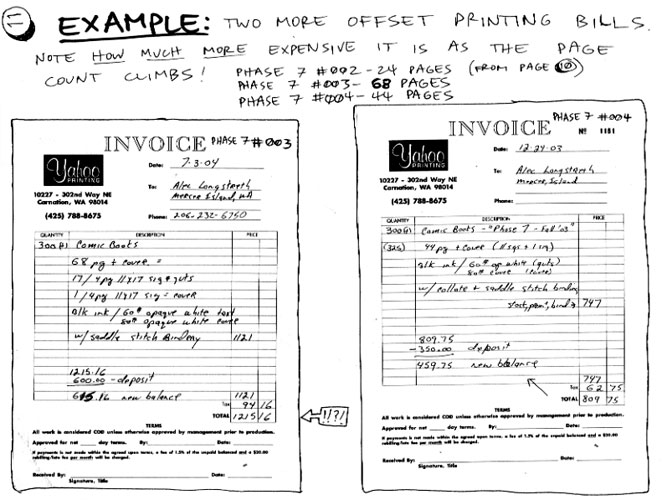 11 EXAMPLE: TWO MORE OFFSET PRINTING BILLS.
NOTE HOW MUCH MORE EXPENSIVE IT IS AS THE PAGE
COUNT CLIMBS!
PHASE 7 #002-24 PAGES (FROM PAGE 10)
PHASE 7 #003- 68 PAGES
PHASE 7 #004- 44 PAGES
INVOICE PHASE 7 #003
Yahoo
PRINTING
Date: 7-3-04
10227 - 302nd Way NE
Carnation, WA 98014
(425) 788-8675
To: Alec Longstreth
Mercer Island, WA
Phone: 206-232-6750
QUANTITY DESCRIPTION PRICE
300 Comic Books
68 pg + cover =
17/4pg 11x17 sig = guts
1/4pg 11x17 sig = cover
Blk ink / 60# opaque white text
80# opaque white cover
w/ saddle stitch Bindery 1121
1215.16
600.00 - deposit
615.16 new balance 1121
Tax 94 16
TOTAL 1215 16
!!?!
TERMS
All work is considered COD unless otherwise approved by management prior to production.
Approved for net ____ day terms. By: Date:
If payments is not made within the agreed upon terms, a fee of 1.5% of the unpaid balanced and a $20.00
rebilling/late fee per month will be charged.
Received By: Date:
Signature, Title
PHASE 7 #004
INVOICE Nº 1181
Yahoo
PRINTING
Date: 12-24-03
10227 - 302nd Way NE
Carnation, WA 98014
(425) 788-8675
To: Alec Longstreth
Mercer Island
Phone:
QUANTITY DESCRIPTION PRICE
300 Comic Books - "Phase 7 - Fall '03"
(325) 44 pg + cover
Blk ink / 60# op white (guts)
80# cover (cover)
w/ collate + saddle stitch bindery
747
809.75
-350.00 deposit
459.75 new balance
747
Tax 62 75
TOTAL 809 75
TERMS
All work is considered COD unless otherwise approved by management prior to production.
Approved for net ____ day terms. By: Date:
If payments is not made within the agreed upon terms, a fee of 1.5% of the unpaid balanced and a $20.00
rebilling/late fee per month will be charged.
Received By: Date:
Signature, Title